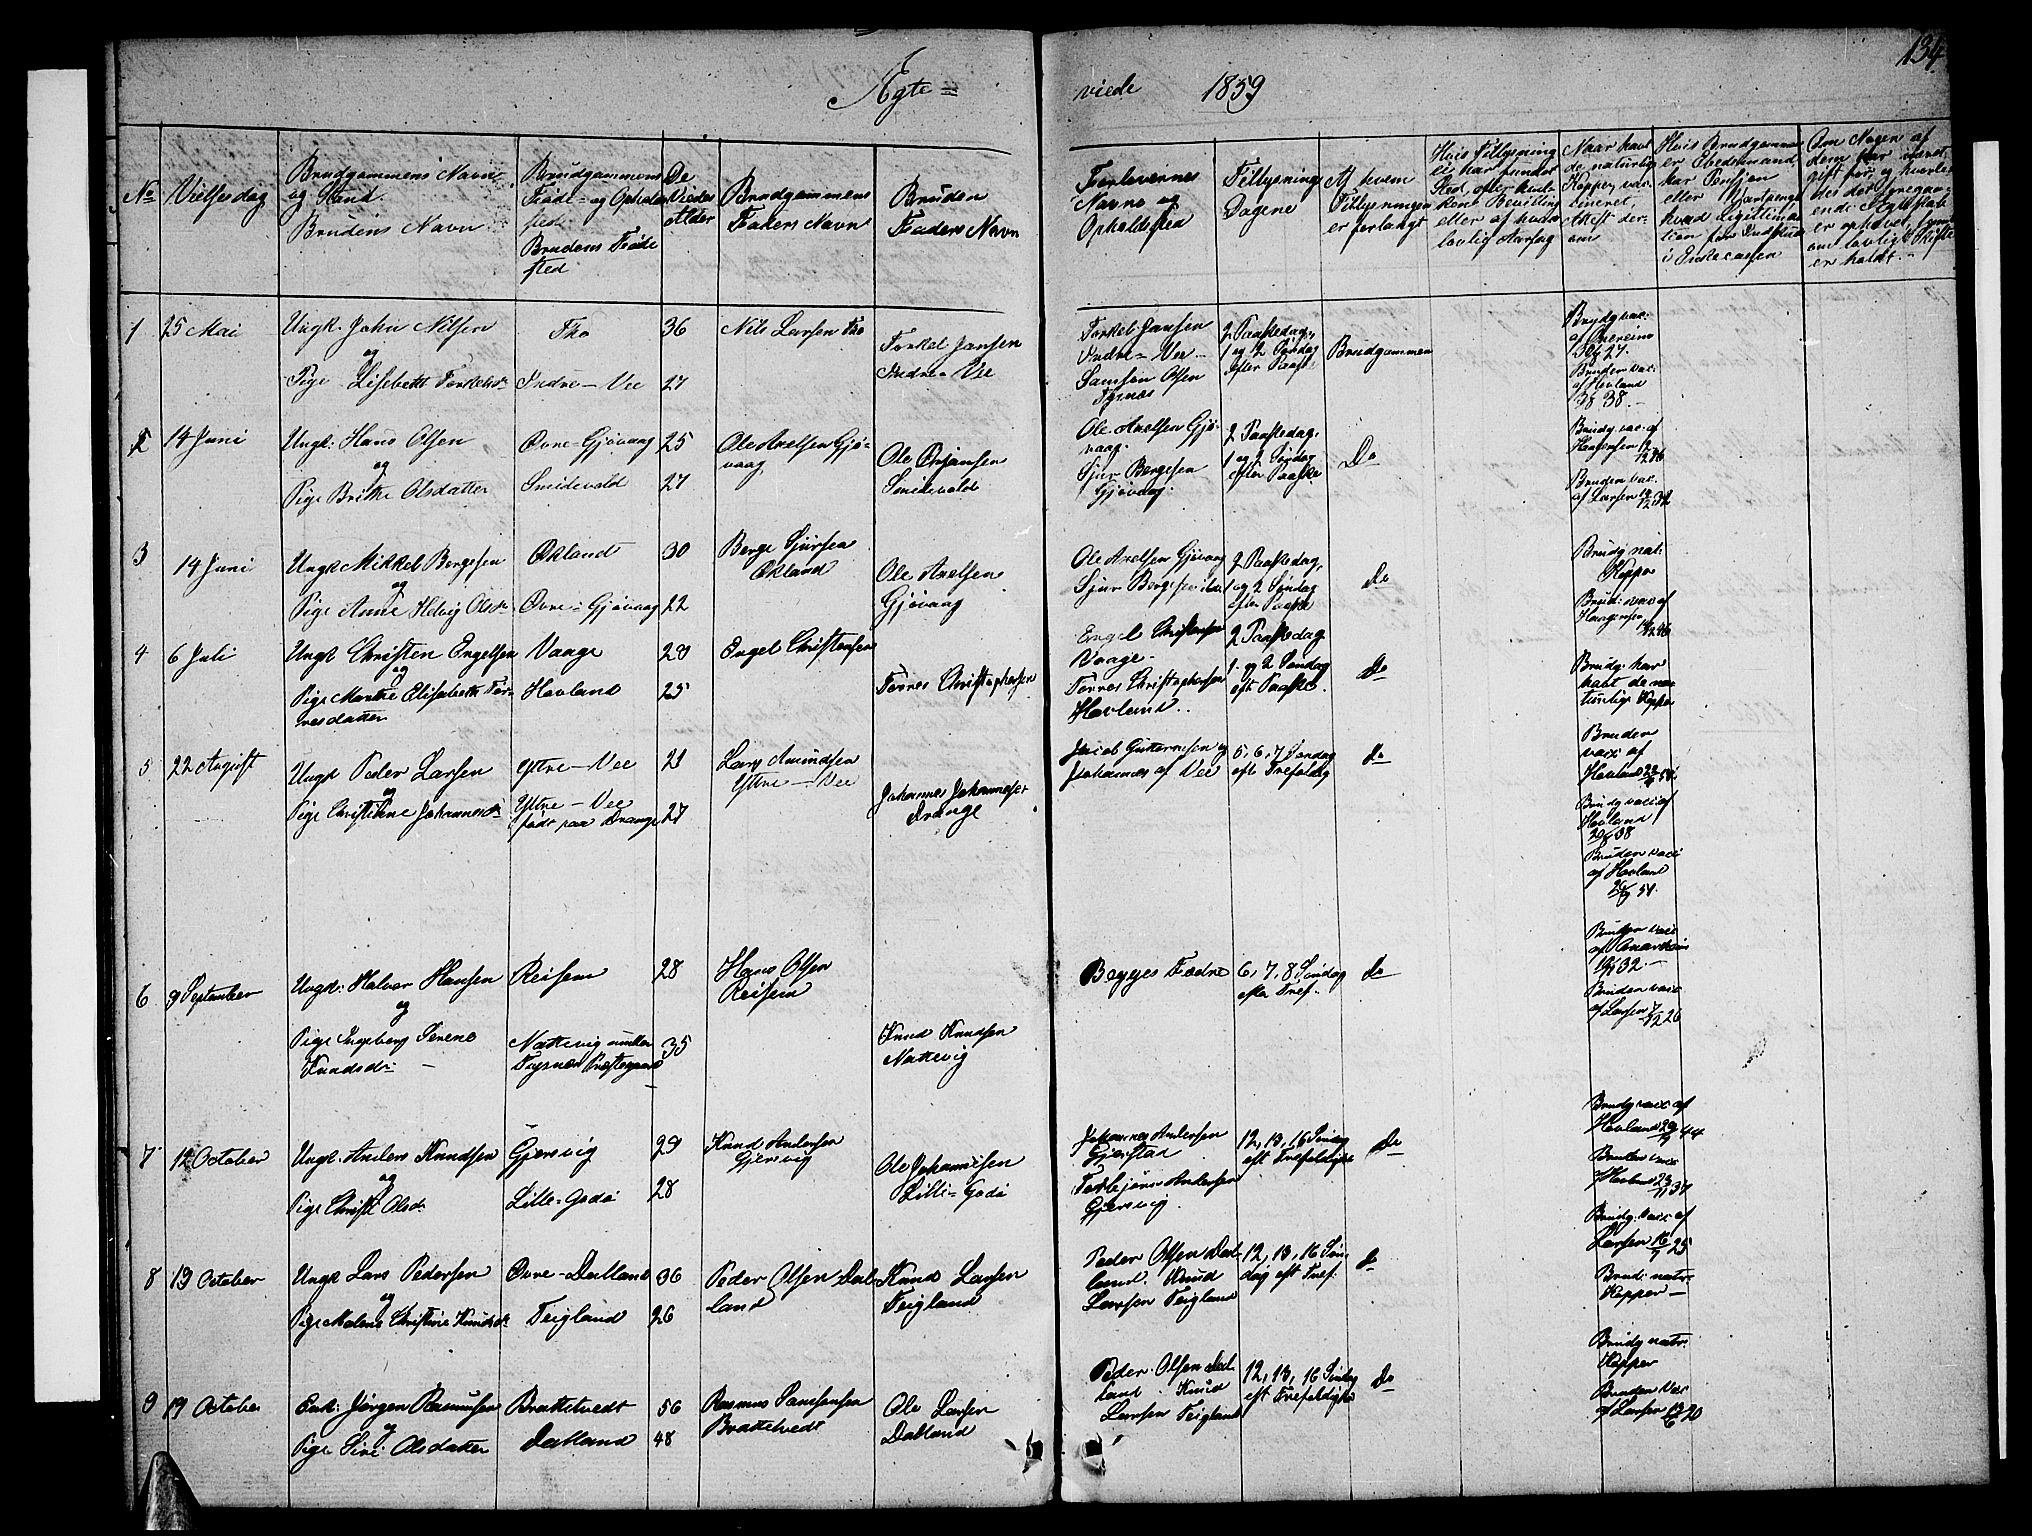 134
Ægte=
viede 1859
No
Vielsesdag
Brudgommens Navn
og Stand.
Brudens Navn
Brudgommens
Føde- og Opholds
sted
Brudens Føde
sted
De
Viedes
Alder
Brudgommens
Faders Navn
Brudens
Faders Navn
Forlovernes
Navne og
Opholdssted
Tillysnings
Dagene
Af hvem
Tillysningen
er forlangt
Hvis Tillysning
ei har fundet
Sted, efter hvil-
ken Bevilling
eller af hvad
lovlig Aarsag
Naar havt
de naturlig
Kopper, vac-
cineret,
Attest der-
om
Hvis Brudgommen
er
har Pension
eller
hvad Legitima-
tion for Indskud
i Enkecassen
Om Nogen af
dem før været
gift
er ophævet,
om lovligt Skifte
er holdt.
1
25 Mai
Ungk. John Nilsen
og
Pige Lisebeth Torkelsdr
Tho
Indre-Vee
36
27
Nils Larsen Tho
Torkel Jansen
Indre-Vee
Torkel Jansen
Indre-Vee
Samson Olsen
Tysnæs
2 Paaskedag,
1 og 2 Søndag
efter Paaske
Brudgommen
Brudg vac:
af
27.
Bruden vac:
af Hovland
38.
2
14 Juni
Ungk: Hans Olsen
og
Pige Brithe Olsdatter
Øvre-Gjøvaag
Smidevold
25
27
Ole Axelsen Gjø-
vaag
Ole Ørjansen
Smidevold
Ole Axelsen Gjø-
vaag.
Sjur Bergesen
Gjøvaag.
2 Paaskedag,
1 og 2 Søndag
efter Paaske
Do
Brudg vac: af
Bruden vac:
af Larsen
3
14 Juni
Ungk Mikkel Bergesen
og
Pige Anne Helvig Olsdr
Økland
Øvre-Gjøvaag
30
22
Berge Sjursen
Økland
Ole Axelsen
Gjøvaag
Ole Axelsen Gjøvaag
Sjur Bergesen
2 Paaskedag,
1 og 2 Søndag
efter Paaske
do
Brudg nat:
Kopper
Brud: vacc af
4
6 Juli
Ungk Christen Engelsen
og
Pige Marthe Elisabeth Tør-
resdatter
Vaage
Hovland
28
25
Engel Christensen
Tørres Christophersen
Engel Christensen
Vaage.
Tørres Christophersen
Hovland.
2 Paaskedag
1 og 2 Søndag
eft Paaske.
Do
Brudg: har
havt de na-
turlige Kopper
Bruden
vacc af
Hovland
5
22 August
Ungk Peder Larsen
og
Pige Christine Johannesdr
Yttre-Vee
Yttre-Vee
født paa Drange
21
27
Lars Amundsen
Yttre-Vee
Johannes Johannesen
Drange
Jacob Guttormsen og
Johannes af Vee
5, 6, 7 Søndag
eft Trefoldig
do
Brudg vacc af
Hovland
38
Bruden vacc
af Hovland
51.
6
9 September
Ungk: Halvor Hansen
og
Pige Ingeborg Serene
Knudsdr
Reisem
Nattevig under
Tysnæs Præstegaard
28
35
Hans Olsen
Reisem
Knud Knudsen
Nattevig
Begges Fædre
6, 7, 8 Søndag
efter Tref.
do
af
32.
Bruden vacc
af Larsen
26
7
12 October
Ungk: Anders Knudsen
og
Pige Christi Olsdr
Gjersvig
Lille-Godø
29
28
Knud Andersen
Gjersvig
Ole Johannesen
Lille-Godø
Johannes Andersen
Gjerstad
Torbjørn Andersen
Gjersvig.
12, 13, 16 Søndag
eft Trefoldighed
Do
Brudg vacc af
Hovland 44
Bruden vacc
Hovland 37
8
13 October
Ungk Lars Pedersen
og
Pige Malene Christine Knudsdr
Øvre-Dalland
Teigland
36
26
Peder Olsen Dal-
land
Knud Larsen
Teigland
Peder Olsen Dal-
land. Knud
Larsen Teigland
12, 13, 16 Søn-
dag eft Tref.
do
Brudg: vacc af
Larsen 25
Brud: natr:
Kopper
9
19 October
Enk: Jørgen Rasmusen
og
Pige Siri Olsdatter
Brattetvedt
Dalland
56
48
Rasmus
Brattetvedt
Ole Larsen
Dalland
Peder Olsen Dal-
land. Knud
Larsen Teigland
12, 13, 16 Søndag
eft Trefoldighe
Do
Brudg natr:
Kopper
Bruden vac
af Larsen 20